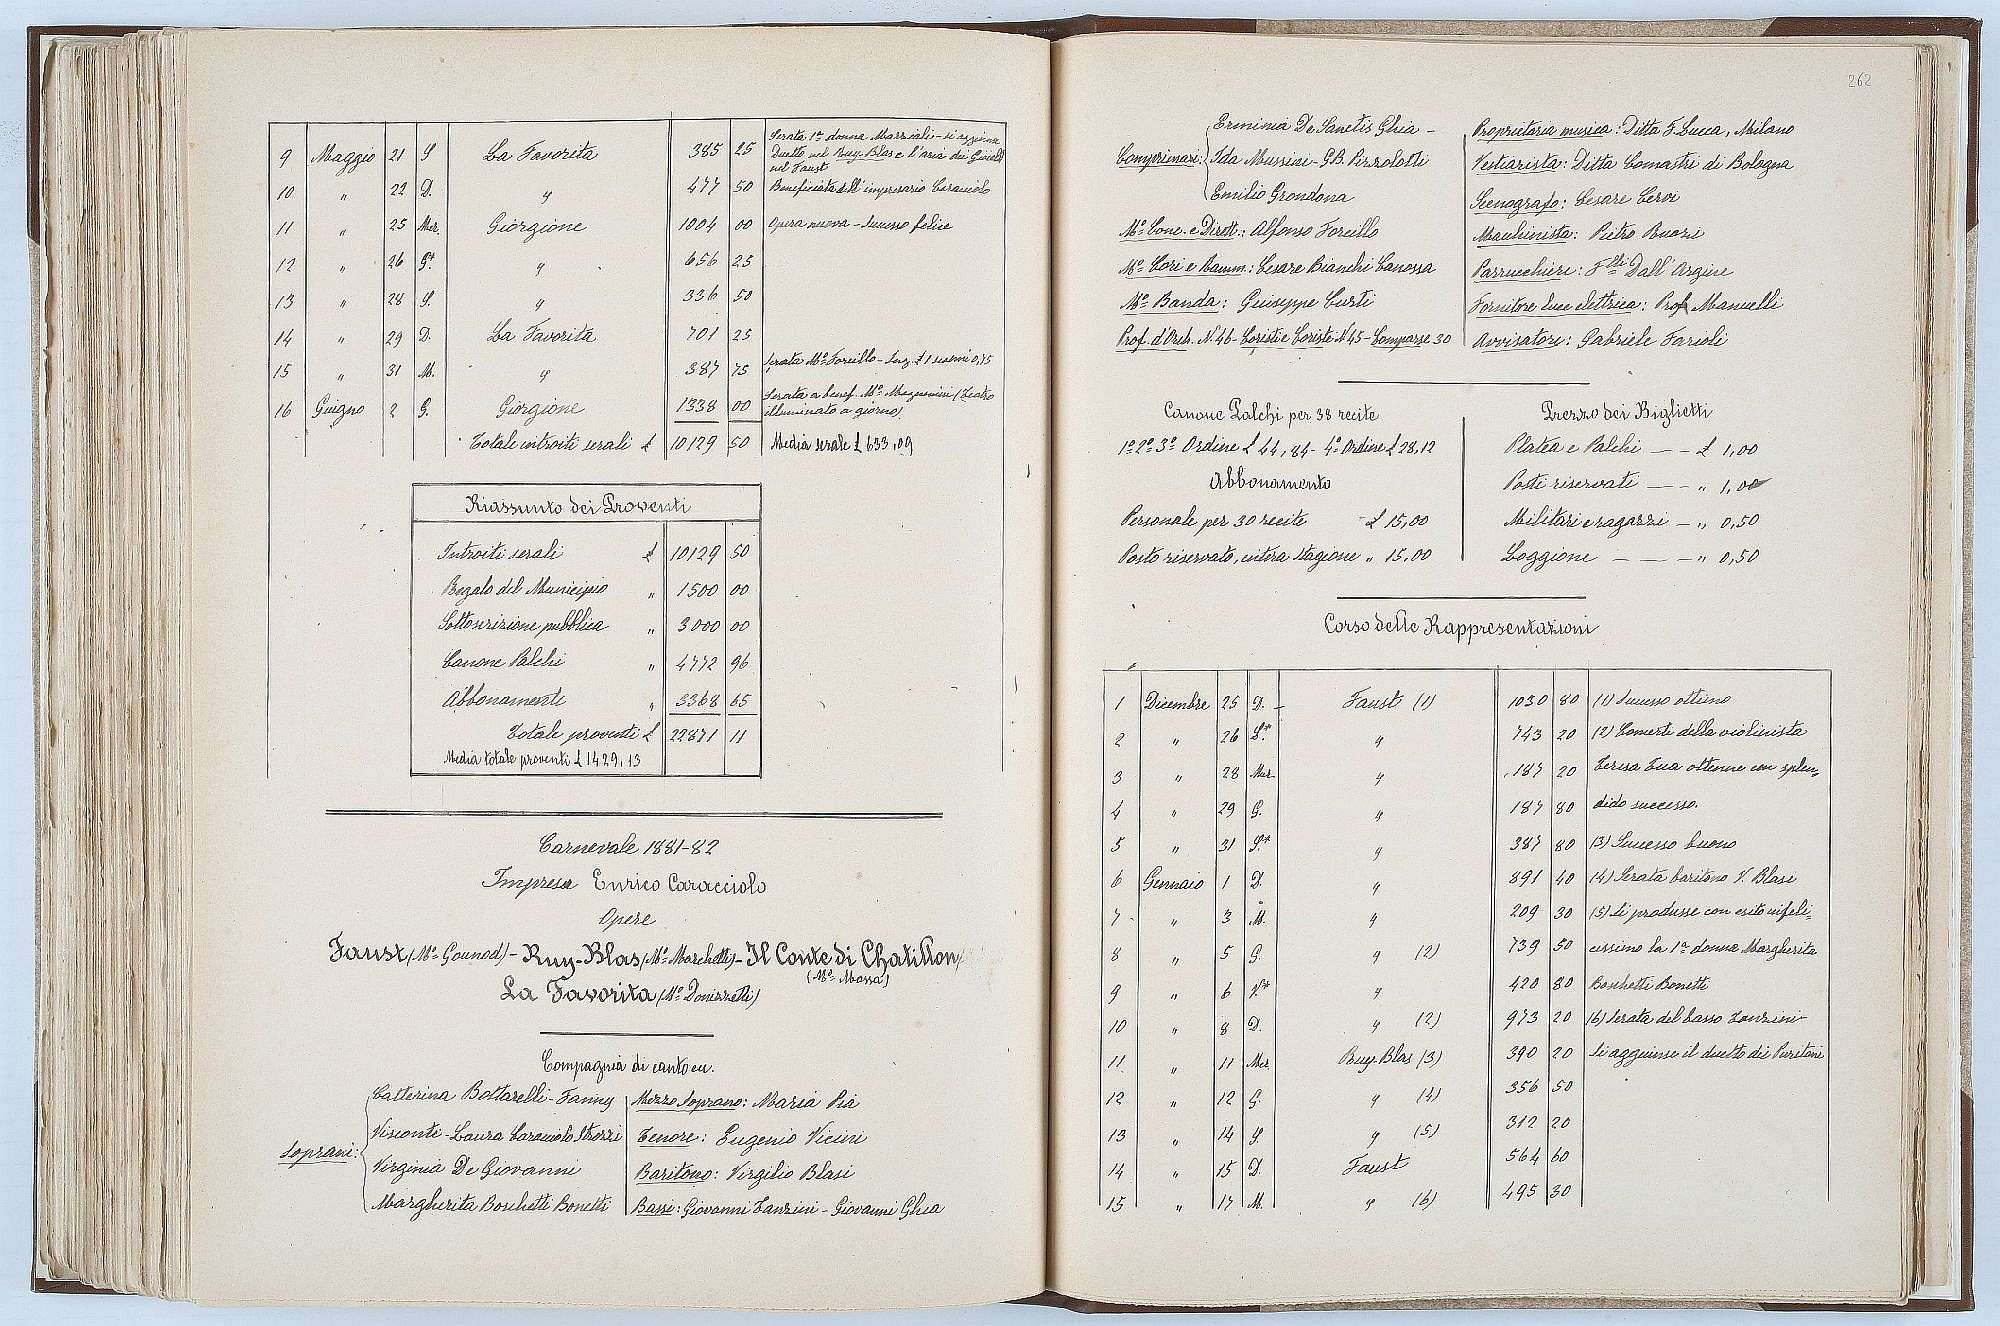 9 Maggio 21 S La Favorita 385 25 Serata 1ª donna Marziali - si aggiunse
Duetto nel Ruy-Blas e l'aria dei Gioielli
nel Faust
10 " 22 D. " 477 50 Beneficiata dell'impresario Caracciolo
11 " 25 Mer. Giorgione 1004 00 Opera nuova - Successo felice
12 " 26 G+. " 656 25
13 " 28 S. " 336 50
14 " 29 D. La Favorita 701 25
15 " 31 M. " 387 75 Serata Mº Forcillo - Ing. £ 1 scanni 0,75
16 Giugno 2 G. Giorgione 1338 00 Serata a benef. Mº Magnanini (Teatro
illuminato a giorno)
Totale introiti serali £ 10129 50 Media serale £ 633,09
Riassunto dei Proventi
Introiti serali £ 10129 50
Regalo del Municipio " 1500 00
Sottoscrizione pubblica " 3000 00
Canone Palchi " 4772 96
Abbonamenti " 3368 65
Totale proventi £ 22871 11
Media totale proventi £ 1429,13
Carnevale 1881-82
Impresa Enrico Caracciolo
Opere
Faust (Mº Gounod) - Ruy-Blas (Mº Marchetti) - Il Conte di Chatillon
(Mº Massa)
La Favorita (Mº Donizzetti)
Compagnia di canto ecc.
Soprani: Catterina Bottarelli - Fanny
Visconti - Laura Caracciolo Strozzi
Virginia De Giovanni
Margherita Boschetti Bonetti
Mezzo Soprano: Maria Pia
Tenore: Eugenio Vicini
Baritono: Virgilio Blasi
Bassi: Giovanni Tanzini - Giovanni Ghia
262
Comprimari: Erminia De Sanctis Ghia -
Ida Mussini - G.B. Pizzolotti
Emilio Grondona
Mº Conc. e Dirett.: Alfonso Forcillo
Mº Cori e Ramm: Cesare Bianchi Canossa
Mº Banda: Giuseppe Curti
Prof. d'Orch. Nº 46 - Coristi e Coriste Nº 45 - Comparse 30
Proprietaria musica: Ditta F. Lucca, Milano
Vestiarista: Ditta Camastri di Bologna
Scenografo: Cesare Cervi
Macchinista: Pietro Buozzi
Parrucchiere: Flli Dall'Argine
Fornitore luce elettrica: Prof. Manuelli
Avvisatore: Gabriele Farioli
Canone Palchi per 38 recite
1º 2º 3º Ordine £ 44,84 - 4º Ordine £ 28,12
Abbonamento
Personale per 30 recite £ 15,00
Posto riservato, intera stagione " 15,00
Prezzo dei Biglietti
Platea e Palchi — - £ 1,00
Posti riservati — - " 1,00
Militari e ragazzi - " 0,50
Loggione — — - " 0,50
Corso delle Rappresentazioni
1 Dicembre 25 D. Faust (1) 1030 80 (1) Successo ottimo
2 " 26 L+ " 743 20 (2) Concerti della violinista
3 " 28 Mer. " 187 20 Teresa Tua ottenne con splen-
4 " 29 G. " 187 80 dido successo.
5 " 31 S+ " 387 80 (3) Successo buono
6 Gennaio 1 D. " 891 40 (4) Serata baritono V. Blasi
7 " 3 M. " 209 30 (5) Si produsse con esito infeli-
8 " 5 G. " (2) 739 50 cissimo la 1ª donna Margherita
9 " 6 V+ " 420 80 Boschetti Bonetti
10 " 8 D. " (2) 973 20 (6) Serata del basso Tanzini
11 " 11 Mer. Ruy-Blas (3) 390 20 Si aggiunse il duetto dei Puritani
12 " 12 G. " (4) 356 50
13 " 14 S. " (5) 312 20
14 " 15 D. Faust 564 60
15 " 17 M. " (6) 495 30